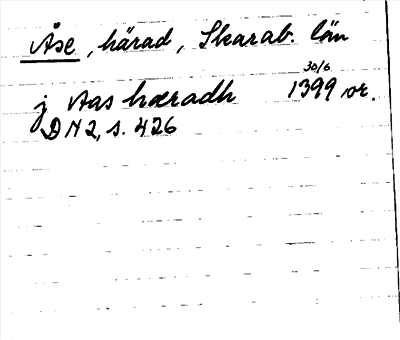 Åse, härad, Skarab. län
j Aas hæradh 30/6 1399 or.
DN 2, s. 426